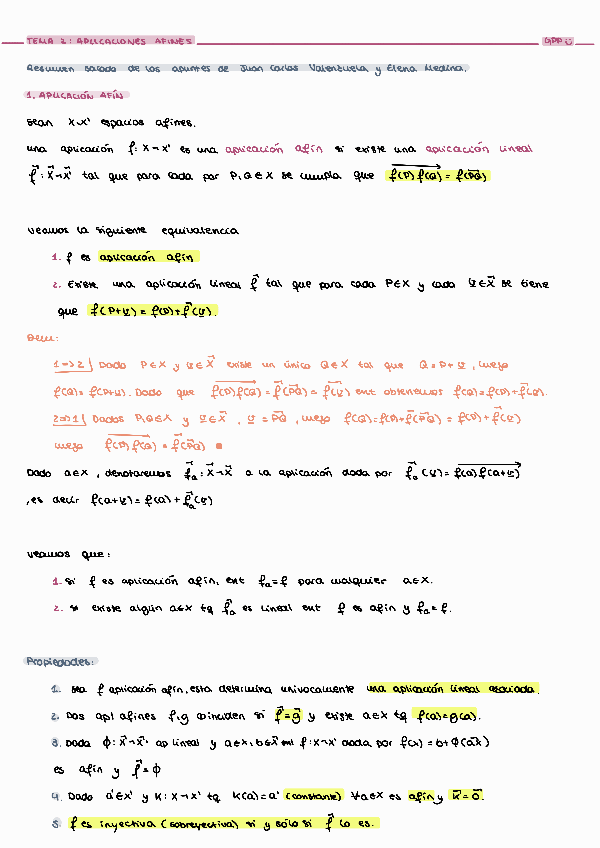 TEMA 2: APLICACIONES AFINES GPP
Resumen sacado de los apuntes de Juan Carlos Valenzuela y Elena Medina.
1. APLICACIÓN AFÍN
Sean X, X' espacios afines.
una aplicación f: X→X' es una aplicación afín si existe una aplicación lineal
f⃗: X⃗→X⃗' tal que para cada par P,Q∈X se cumpla que f(P)f(Q) = f⃗(PQ)
Veamos la siguiente equivalencia
1. f es aplicación afín
2. Existe una aplicación lineal f⃗ tal que para cada P∈X y cada u∈X⃗ se tiene
que f(P+u) = f(P)+f⃗(u).
Dem:
1=>2| Dado P∈X y u∈X⃗ existe un único Q∈X tal que Q=P+u, luego
f(Q)=f(P+u). Dado que f(P)f(Q) = f⃗(PQ) = f⃗(u) ent obtenemos f(Q)=f(P)+f⃗(u).
2=>1| Dados P,Q∈X y u∈X⃗, u=PQ, luego f(Q)=f(P)+f⃗(PQ) = f(P)+f⃗(u)
luego f(P)f(Q) = f⃗(PQ) ■
Dado a∈X, denotaremos f⃗ₐ: X⃗→X⃗ a la aplicación dada por f⃗ₐ(u)=f(a)f(a+u)
, es decir f(a+u)=f(a)+f⃗ₐ(u)
Veamos que:
1. Si f es aplicación afín, ent fₐ=f para cualquier a∈X.
2. Si existe algún a∈X tq f⃗ₐ es lineal ent f es afín y fₐ=f.
Propiedades:
1. Sea f aplicación afín, esta determina unívocamente una aplicación lineal asociada.
2. Dos apl afines f,g coinciden si f⃗=g⃗ y existe a∈X tq f(a)=g(a).
3. Dada ϕ: X⃗→X⃗' ap lineal y a∈X, b∈X' ent f: X→X' dada por f(x)=b+ϕ(ax)
es afín y f⃗=ϕ
4. Dado a'∈X' y K: X→X' tq K(a)=a' (constante) ∀a∈X es afín y K⃗=0⃗.
5. f es inyectiva (sobreyectiva) si y sólo si f⃗ lo es.